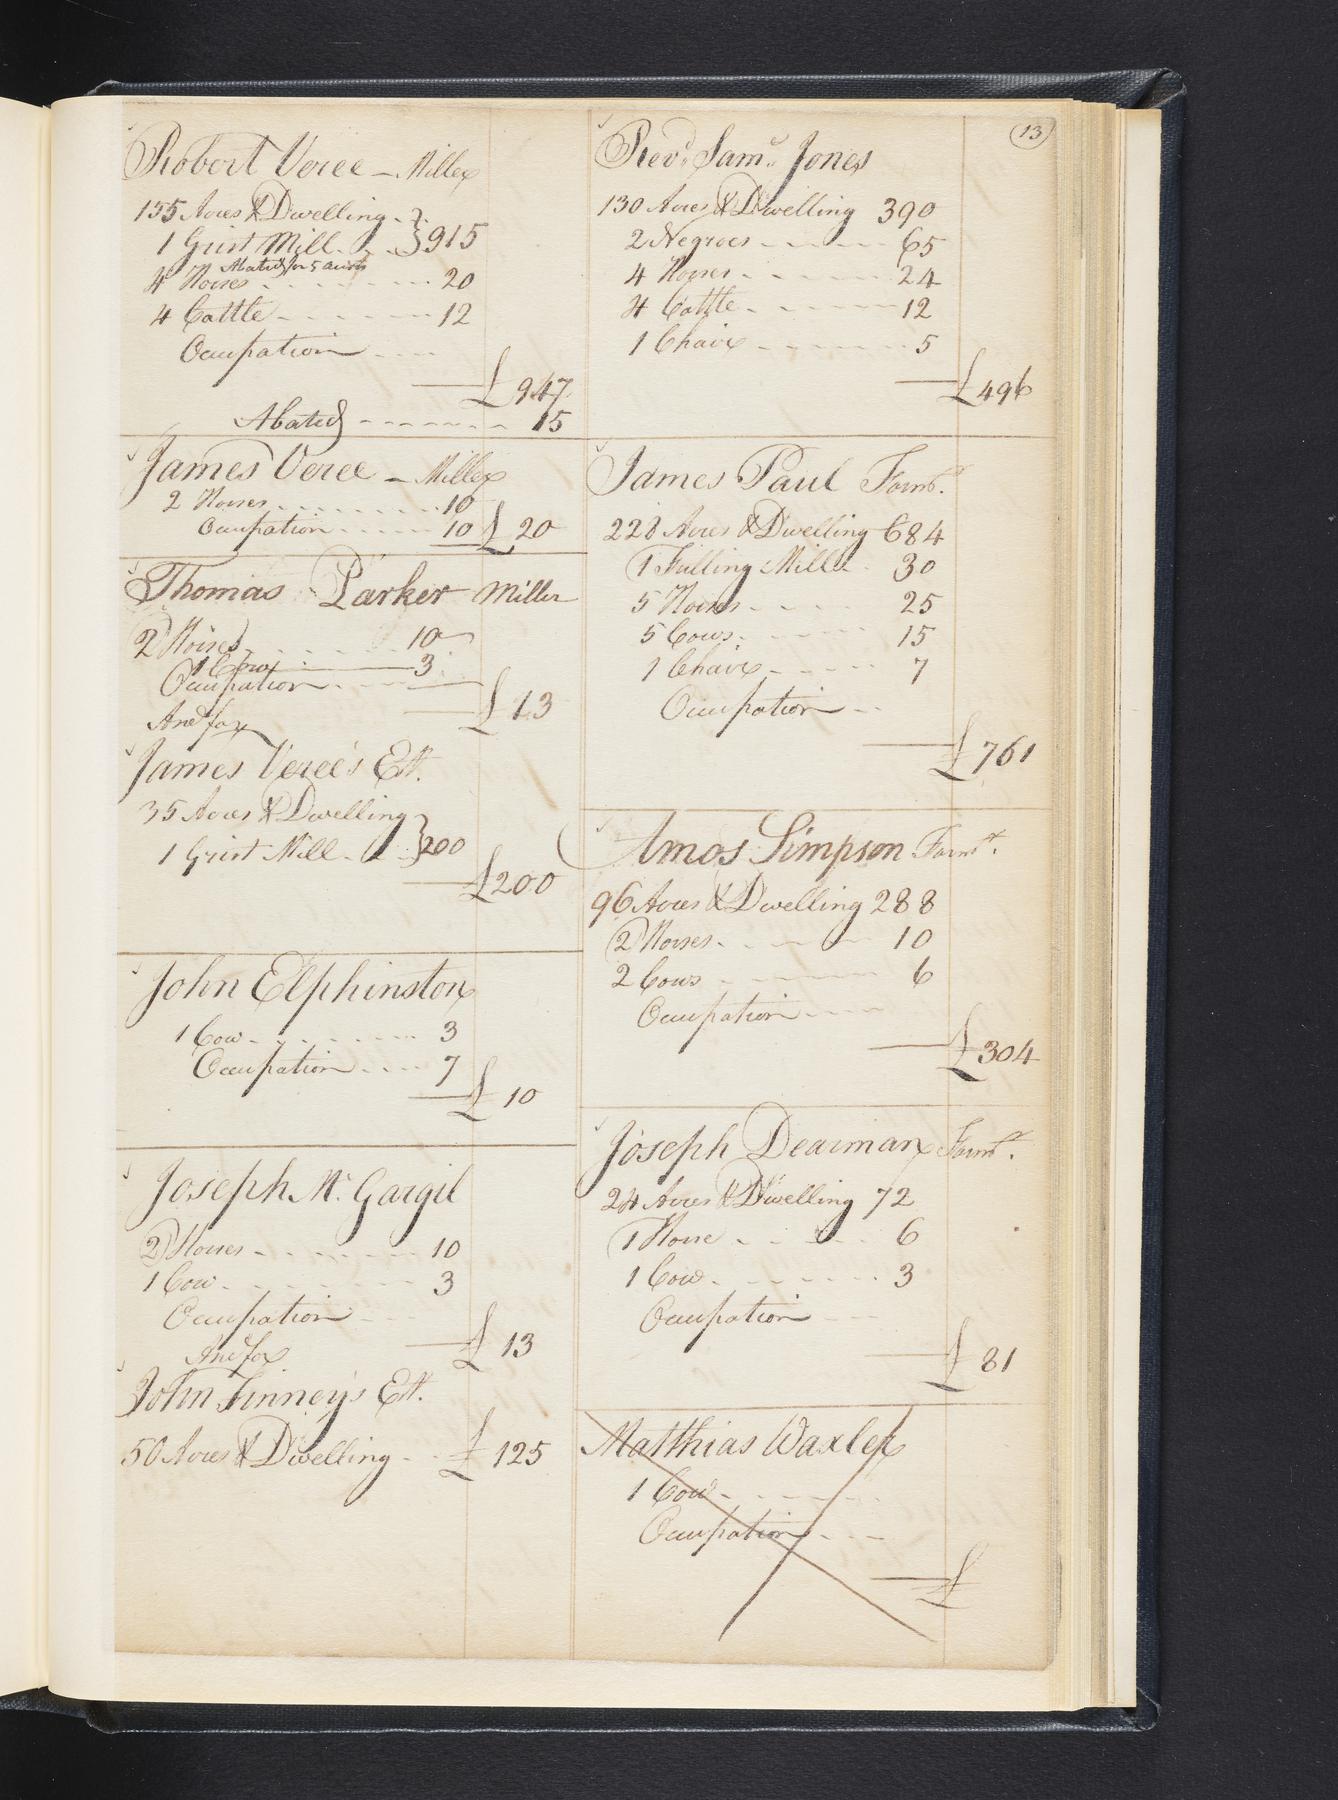 13
Robert Veree - Miller
155 Acres & Dwelling
1 Grist Mill } 915
Abated for 5 acres
4 Horses 20
4 Cattle 12
Occupation
£ 947
Abated 15
James Veree - Miller
2 Horses 10
Occupation 10 £ 20
Thomas Parker Miller
2 Horses 10
1 Cow 3
Occupation
£ 13
And for
James Veree's Est.
35 Acres & Dwelling
1 Grist Mill } 200
£ 200
John Elphinston
1 Cow 3
Occupation 7
£ 10
Joseph Mc. Gargil
2 Horses 10
1 Cow 3
Occupation
£ 13
And for
John Finney's Est.
50 Acres & Dwelling £ 125
Revd. Saml. Jones
130 Acres & Dwelling 390
2 Negroes 65
4 Horses 24
4 Cattle 12
1 Chair 5
£ 496
James Paul Farmr.
228 Acres & Dwelling 684
1 Fulling Mill 30
5 Horses 25
5 Cows 15
1 Chair 7
Occupation
£ 761
Amos Simpson Farmr.
96 Acres & Dwelling 288
2 Horses 10
2 Cows 6
Occupation
£ 304
Joseph Dearman Farmr.
24 Acres & Dwelling 72
1 Horse 6
1 Cow 3
Occupation
£ 81
Matthias Waxler
1 Cow
Occupation
£